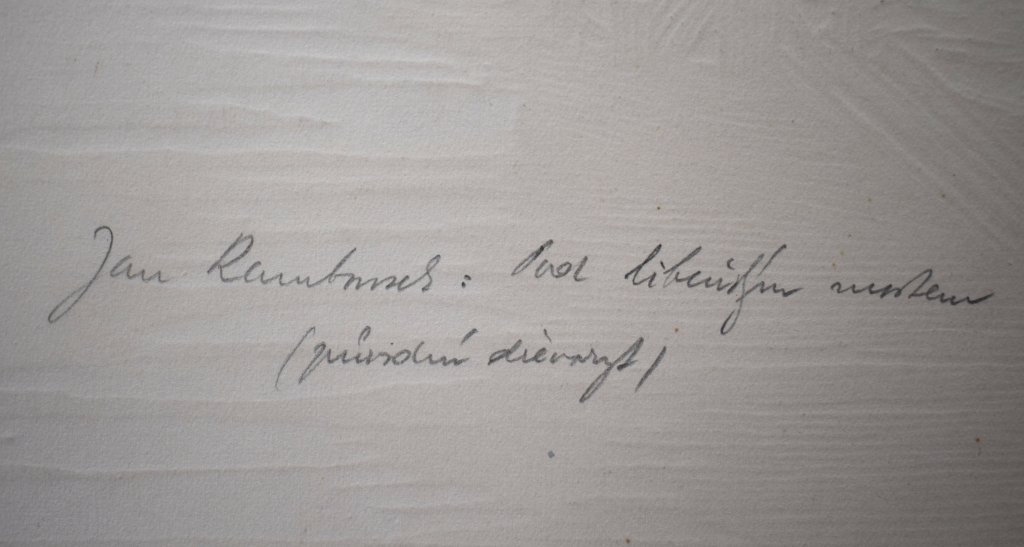 Jan Rambousek: Pod libeňským mostem
(původní dřevoryt)